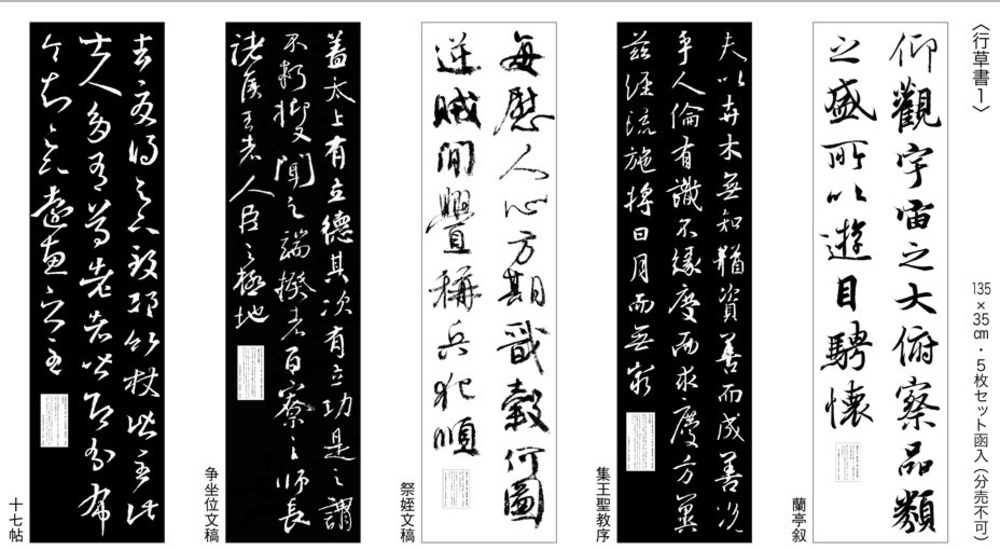 〈行草書1〉
135×35㎝・5枚セット函入(分売不可)
仰觀宇宙之大俯察品類
之盛所以遊目騁懷
蘭亭叙
夫以卉木無知猶資善而成善況
乎人倫有識不縁慶而求慶方冀
茲經流施将日月而無窮
集王聖教序
每慰人心方期戩穀何圖
逆賊間釁稱兵犯順
祭姪文稿
蓋太上有立德其次有立功是之謂
不朽抑又聞之端揆者百寮之師長
諸侯王者人臣之極地
争坐位文稿
去夏得足下致邛竹杖皆至此
士人多有尊老者皆即分布
令知足下遠惠之至
十七帖